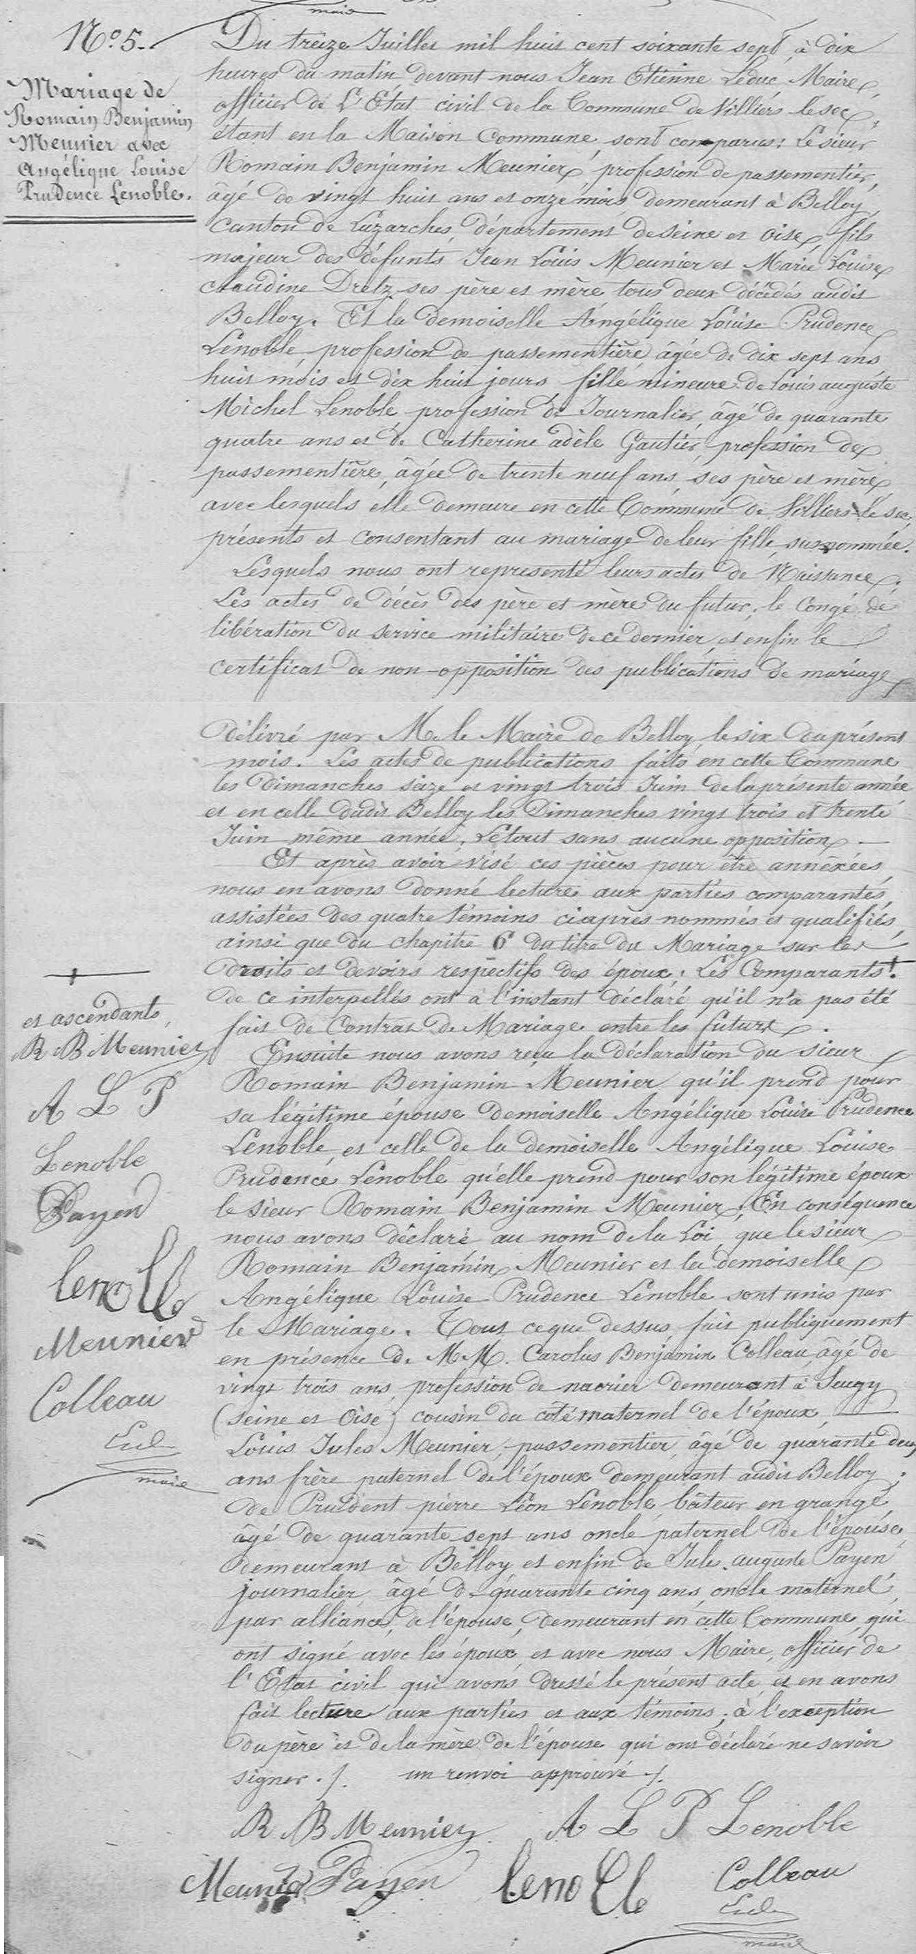 maire
N° 5.
Mariage de
Romain Benjamin
Meunier avec
Angélique Louise
Prudence Lenoble.
Du treize Juillet mil huit cent soixante sept, à dix
heures du matin devant nous Jean Etienne Leduc, Maire,
officier de L'Etat civil de la Commune de Villiers le sec,
étant en la Maison Commune, sont comparus: Le sieur
Romain Benjamin Meunier, profession de passementier,
âgé de vingt huit ans et onze mois demeurant à Belloy,
Canton de Luzarches, département de Seine et Oise, fils
majeur des défunts Jean Louis Meunier et Marie Louise
Claudine Dretz ses père et mère, tous deux décédés audit
Belloy. Et la demoiselle Angélique Louise Prudence
Lenoble, profession de passementière, âgée de dix sept ans
huit mois et dix huit jours, fille mineure de Louis auguste
Michel Lenoble, profession de Journalier, âgé de quarante
quatre ans et de Catherine adèle Gautier, profession de
passementière, âgée de trente neuf ans, ses père et mère
avec lesquels elle demeure en cette Commune de Villiers-le sec,
présents et consentant au mariage de leur fille, susnommée.
Lesquels nous ont representé leurs actes de Naissance,
Les actes de décès des père et mère du futur, le Congé de
libération du service militaire de ce dernier, et enfin le
certificat de non-opposition des publications de mariage
délivré par M. le Maire de Belloy, le six du présent
mois. Les actes de publications faits en cette Commune
les dimanches seize et vingt trois Juin de la présente année
et en celle dudit Belloy les Dimanches vingt trois et trente
Juin même année, Le tout sans aucune opposition. —
Et après avoir visé ces pièces pour être annéxées,
nous en avons donné lecture aux parties comparantes,
assistées des quatre témoins ciaprès nommés et qualifiés,
ainsi que du chapitre 6 du titre du Mariage sur les
droits et devoirs respectifs des époux. Les Comparants +
de ce interpellés ont à l'instant déclaré qu'il n'a pas été
fait de Contrat de Mariage entre les futurs.
Ensuite nous avons reçu la déclaration du sieur
Romain Benjamin Meunier qu'il prend pour
sa légitime épouse demoiselle Angélique Louise Prudence
Lenoble, et celle de la demoiselle Angélique Louise
Prudence Lenoble qu'elle prend pour son légitime époux
le sieur Romain Benjamin Meunier, En conséquence
nous avons déclaré au nom de la Loi, que le sieur
Romain Benjamin Meunier et la demoiselle
Angélique Louise Prudence Lenoble sont unis par
le Mariage. Tout ce que dessus fait publiquement
en présence de M.M. Carolus Benjamin Colleau, âgé de
vingt trois ans, profession de nacrier demeurant à Seugy
(Seine et Oise) cousin du coté maternel de l'époux, —
Louis Jules Meunier, passementier, âgé de quarante deux
ans frère paternel de l'époux demeurant audit Belloy,
de Prudent pierre Léon Lenoble, bâteur en grange,
âgé de quarante sept ans oncle paternel de l'épouse,
demeurant à Belloy et enfin de Jules auguste Payen
journalier, âgé de quarante cinq ans, oncle maternel
par alliance, de l'épouse, demeurant en cette Commune, qui
ont signé avec les époux et avec nous Maire, officier de
l'Etat civil qui avons dressé le présent acte et en avons
fait lecture aux parties et aux témoins, à l'exception
du père et de la mère de l'épouse qui ont déclaré ne savoir
signer. /. un renvoi approuvé /.
+
et ascendants,
R B Meunier
A L P
Lenoble
Payen
lenoble
Meunier
Colleau
maire
R B Meunier A L P Lenoble
Meunier Payen lenoble Colleau
maire